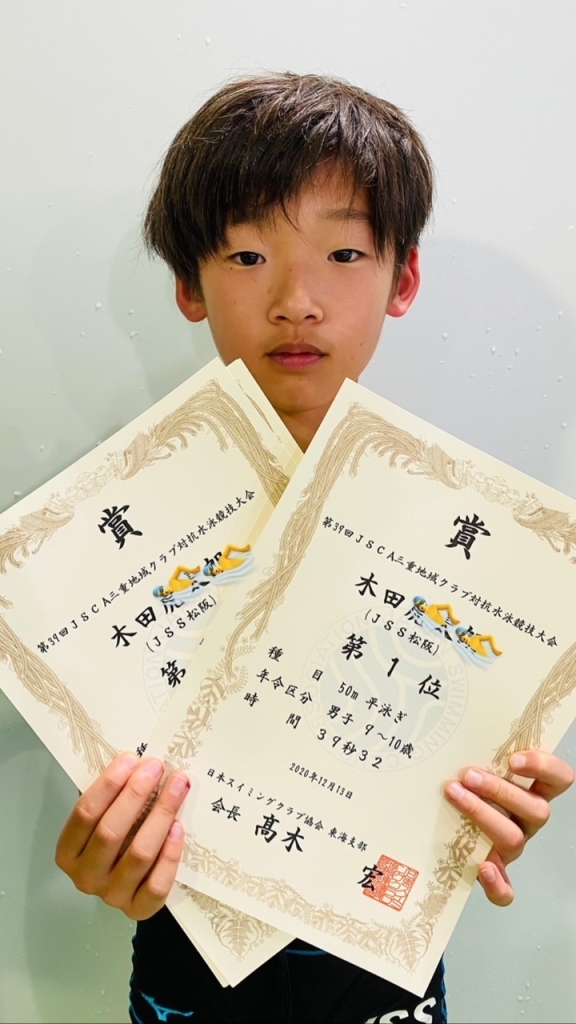 賞
第39回JSCA三重地域クラブ対抗水泳競技大会
木田
(JSS松阪)
第
賞
第39回JSCA三重地域クラブ対抗水泳競技大会
木田
(JSS松阪)
第1位
種目 50m 平泳ぎ
年令区分 男子 9~10歳
時間 39秒32
2020年12月13日
日本スイミングクラブ協会 東海支部
会長 髙木 宏